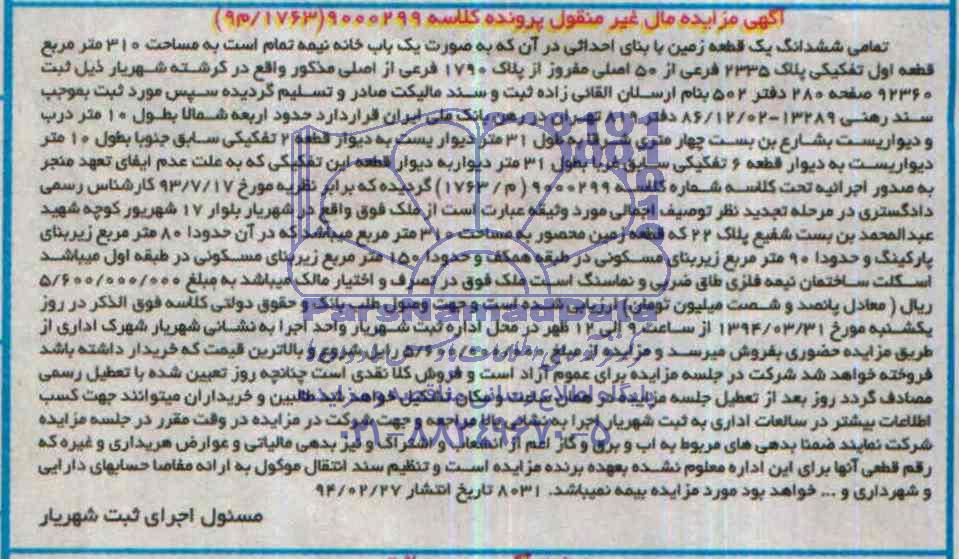 آگهی مزایده مال غیر منقول پرونده کلاسه ۹۰۰۰۲۹۹(۱۷۶۳/م۹)
تمامی ششدانگ یک قطعه زمین با بنای احداثی در آن که به صورت یک باب خانه نیمه تمام است به مساحت ۳۱۰ متر مربع
قطعه اول تفکیکی پلاک ۲۳۳۵ فرعی از ۵۰ اصلی مفروز از پلاک ۱۷۹۰ فرعی از اصلی مذکور واقع در کرشته شهریار ذیل ثبت
۹۲۳۶۰ صفحه ۲۸۰ دفتر ۵۰۲ بنام ارسلان القائی زاده ثبت و سند مالیکت صادر و تسلیم گردیده سپس مورد ثبت بموجب
سند رهنی ۱۳۲۸۹-۸۶/۱۲/۰۲ دفتر ۸۱۹ تهران در رهن بانک ملی ایران قراردارد حدود اربعه شمالا بطول ۱۰ متر درب
و دیواریست بشارع بن بست چهار متری شرقا بطول ۳۱ متر دیوار یست به دیوار قطعه ۲ تفکیکی سابق جنوبا بطول ۱۰ متر
دیواریست به دیوار قطعه ۶ تفکیکی سابق غربا بطول ۳۱ متر دیواربه دیوار قطعه این تفکیکی که به علت عدم ایفای تعهد منجر
به صدور اجرائیه تحت کلاسه شماره کلاسه ۹۰۰۰۲۹۹ (م/۱۷۶۳) گردیده که برابر نظریه مورخ ۹۳/۷/۱۷ کارشناس رسمی
دادگستری در مرحله تجدید نظر توصیف اجمالی مورد وثیقه عبارت است از ملک فوق واقع در شهریار بلوار ۱۷ شهریور کوچه شهید
عبدالمحمد بن بست شفیع پلاک ۲۲ که قطعه زمین محصور به مساحت ۳۱۰ متر مربع میباشد که در آن حدودا ۸۰ متر مربع زیربنای
پارکینگ و حدودا ۹۰ متر مربع زیربنای مسکونی در طبقه همکف و حدودا ۱۵۰ متر مربع زیربنای مسکونی در طبقه اول میباشد
اسکلت ساختمان نیمه فلزی طاق ضربی و نماسنگ است ملک فوق در تصرف و اختیار مالک میباشد به مبلغ ۵/۶۰۰/۰۰۰/۰۰۰
ریال (معادل پانصد و شصت میلیون تومان) ارزیابی شده است و جهت وصول طلب بانک و حقوق دولتی کلاسه فوق الذکر در روز
یکشنبه مورخ ۱۳۹۴/۰۳/۳۱ از ساعت ۹ الی ۱۲ ظهر در محل اداره ثبت شهریار واحد اجرا به نشانی شهریار شهرک اداری از
طریق مزایده حضوری بفروش میرسد و مزایده از مبلغ ۵/۶۰۰/۰۰۰/۰۰۰ ریال شروع و بالاترین قیمت که خریدار داشته باشد
فروخته خواهد شد شرکت در جلسه مزایده برای عموم آزاد است و فروش کلا نقدی است چنانچه روز تعیین شده با تعطیل رسمی
مصادف گردد روز بعد از تعطیل جلسه مزایده در همان ساعت و مکان تشکیل خواهد شد طالبین و خریداران میتوانند جهت کسب
اطلاعات بیشتر در سالعات اداری به ثبت شهریار اجرا به نشانی بالا مراجعه و جهت شرکت در مزایده در وقت مقرر در جلسه مزایده
شرکت نمایند ضمنا بدهی های مربوط به اب و برق و گاز اعم از انشعاب و اشتراک و نیز بدهی مالیاتی و عوارض هریداری و غیره که
رقم قطعی آنها برای این اداره معلوم نشده بعهده برنده مزایده است و تنظیم سند انتقال موکول به ارائه مفاصا حسابهای دارایی
و شهرداری و ... خواهد بود مورد مزایده بیمه نمیباشد. ۸۰۳۱ تاریخ انتشار ۹۴/۰۲/۲۷
مسئول اجرای ثبت شهریار
ParsNamadData
پایگاه اطلاع رسانی مناقصه و مزایده
۰۲۱-۸۸۳۴۹۶۷۰-۵